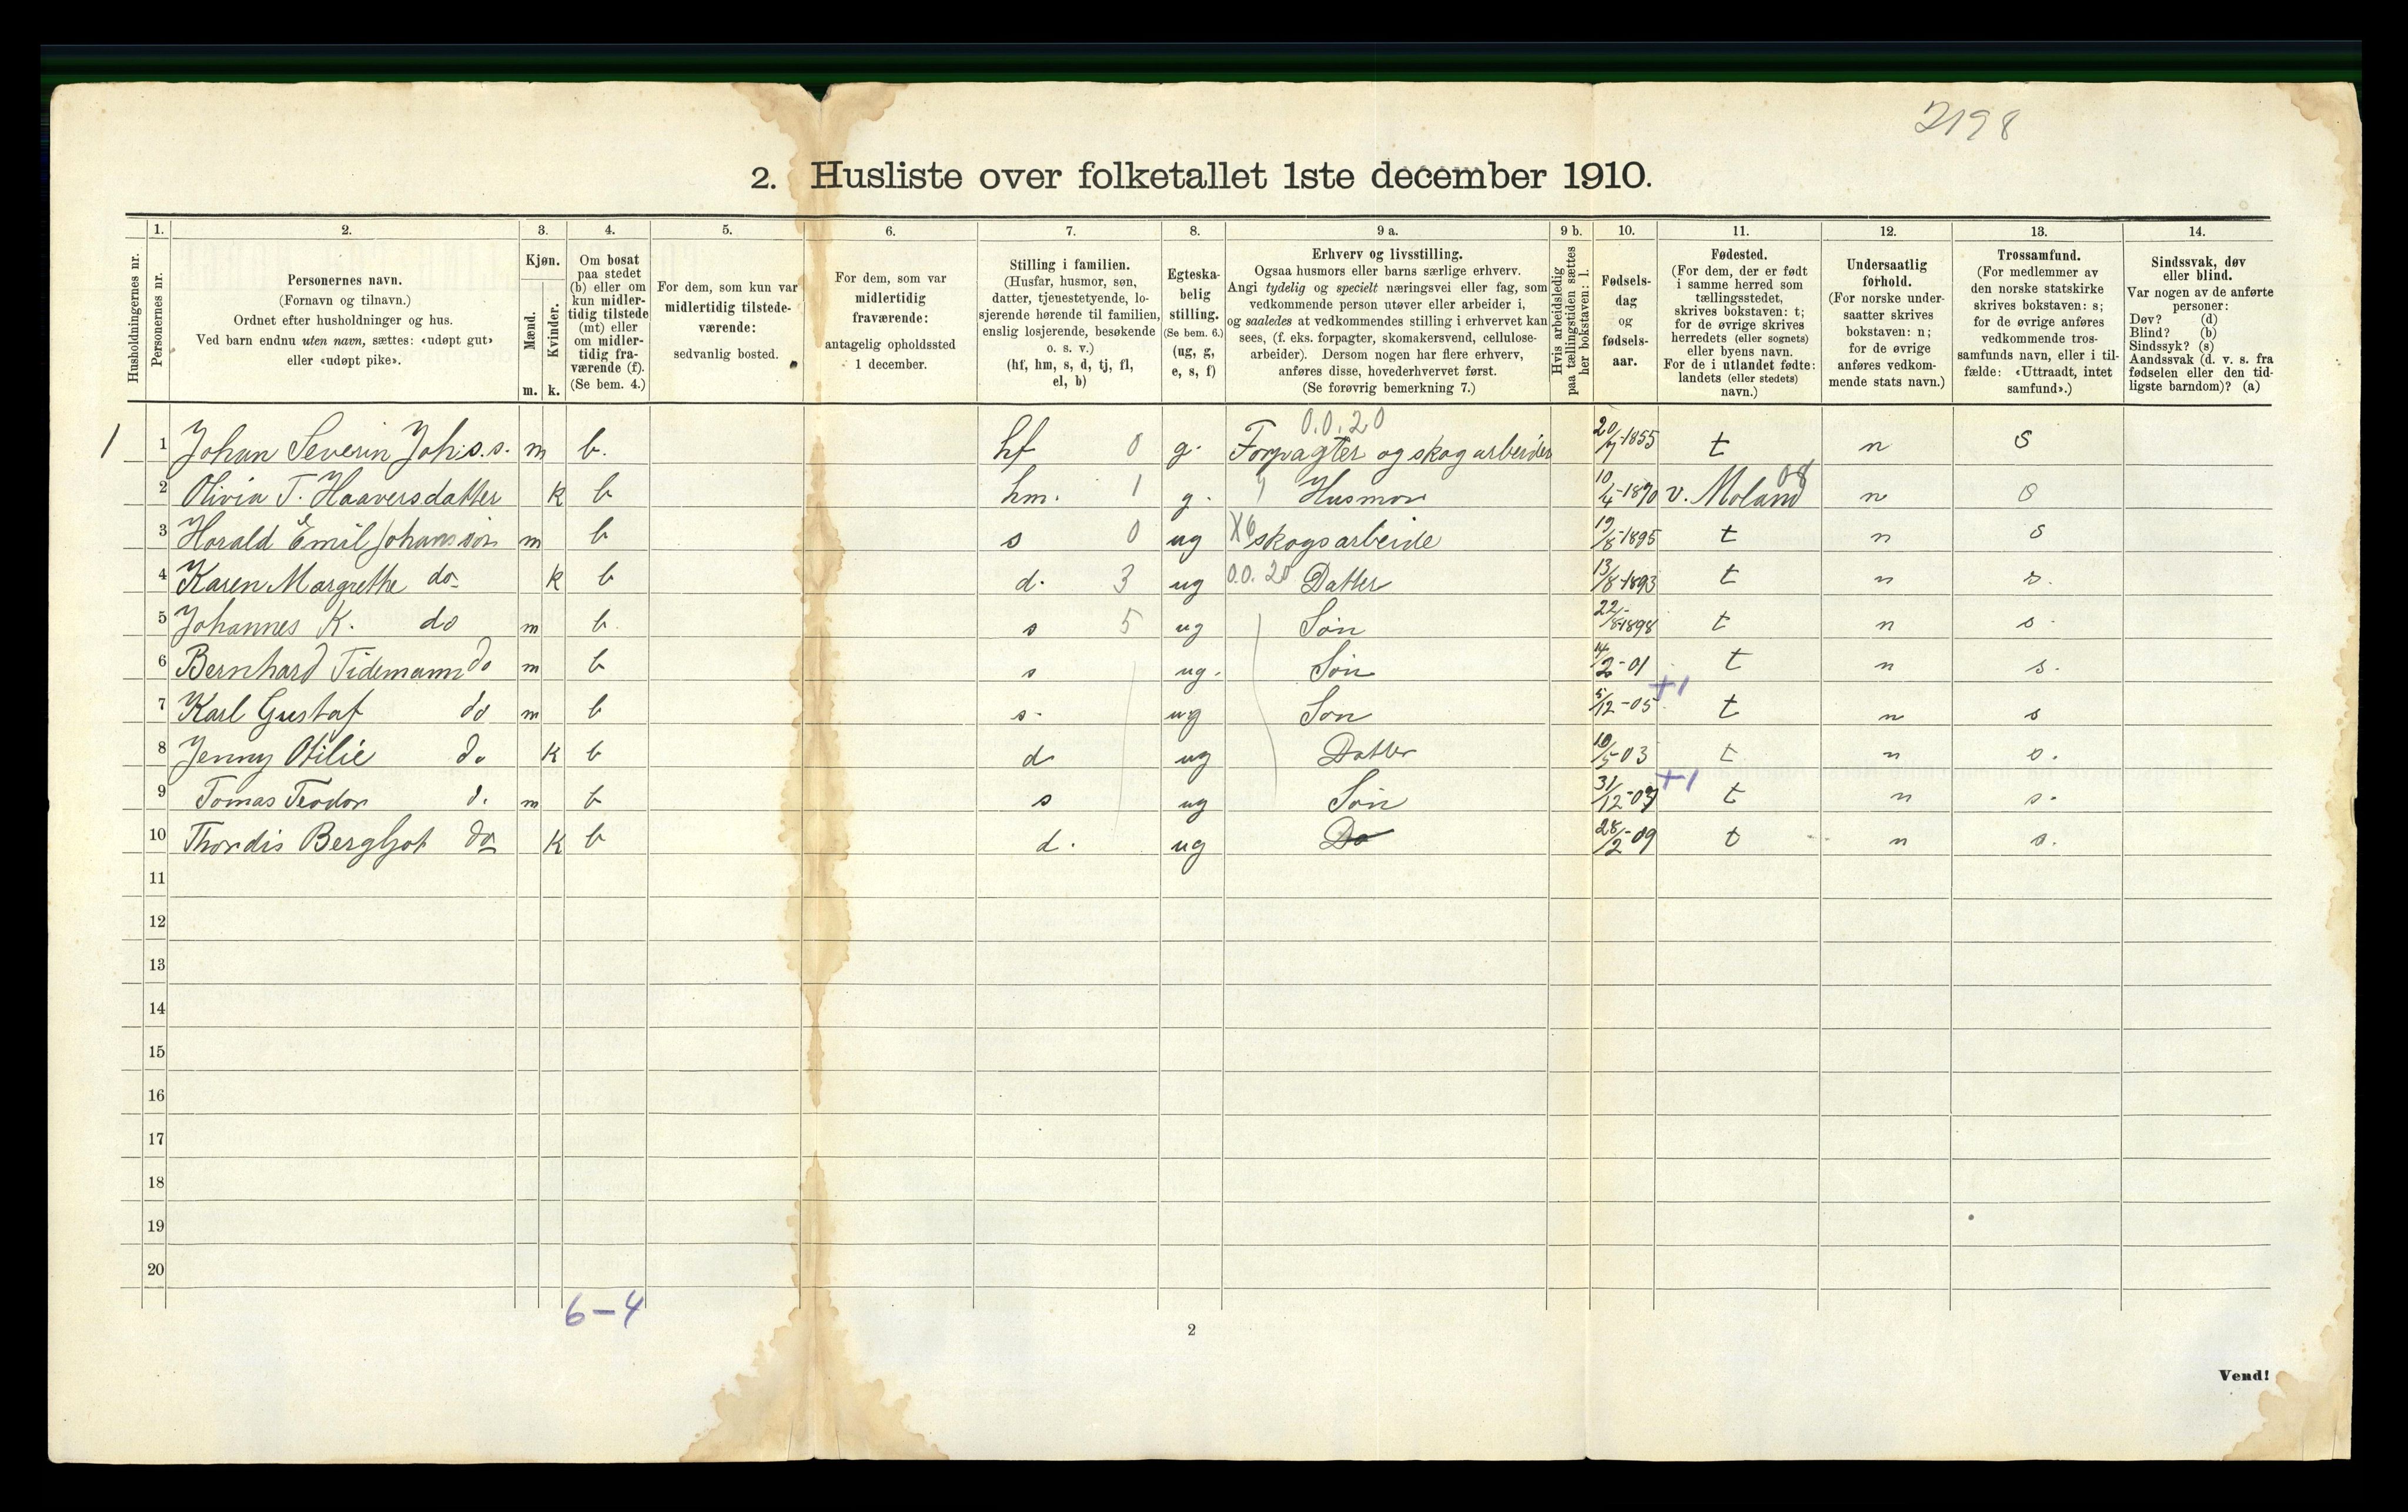 2198
2. Husliste over folketallet 1ste december 1910.
Husholdningernes nr.
1. Personernes nr.
2. Personernes navn.
(Fornavn og tilnavn.)
Ordnet efter husholdninger og hus.
Ved barn endnu uten navn, sættes: «udøpt gut»
eller «udøpt pike».
3. Kjøn.
Mænd. m.
Kvinder. k.
4. Om bosat
paa stedet
(b) eller om
kun midler-
tidig tilstede
(mt) eller
om midler-
tidig fra-
værende (f).
(Se bem. 4.)
5. For dem, som kun var
midlertidig tilstede-
værende:
sedvanlig bosted.
6. For dem, som var
midlertidig
fraværende:
antagelig opholdssted
1 december.
7. Stilling i familien.
(Husfar, husmor, søn,
datter, tjenestetyende, lo-
sjerende hørende til familien,
enslig losjerende, besøkende
o. s. v.)
(hf, hm, s, d, tj, fl,
el, b)
8. Egteska-
belig
stilling.
(Se bem. 6.)
(ug, g,
e, s, f)
9 a. Erhverv og livsstilling.
Ogsaa husmors eller barns særlige erhverv.
Angi tydelig og specielt næringsvei eller fag, som
vedkommende person utøver eller arbeider i,
og saaledes at vedkommendes stilling i erhvervet kan
sees, (f. eks. forpagter, skomakersvend, cellulose-
arbeider). Dersom nogen har flere erhverv,
anføres disse, hovederhvervet først.
(Se forøvrig bemerkning 7.)
9 b. Hvis arbeidsledig
paa tællingstiden sættes
her bokstaven: l.
10. Fødsels-
dag
og
fødsels-
aar.
11. Fødested.
(For dem, der er født
i samme herred som
tællingsstedet,
skrives bokstaven: t;
for de øvrige skrives
herredets (eller sognets)
eller byens navn.
For de i utlandet fødte:
landets (eller stedets)
navn.)
12. Undersaatlig
forhold.
(For norske under-
saatter skrives
bokstaven: n;
for de øvrige
anføres vedkom-
mende stats navn.)
13. Trossamfund.
(For medlemmer av
den norske statskirke
skrives bokstaven: s;
for de øvrige anføres
vedkommende tros-
samfunds navn, eller i til-
fælde: «Uttraadt, intet
samfund».)
14. Sindssvak, døv
eller blind.
Var nogen av de anførte
personer:
Døv? (d)
Blind? (b)
Sindssyk? (s)
Aandssvak (d. v. s. fra
fødselen eller den tid-
ligste barndom)? (a)
0.0.20
1 1 Johan Severin Joh.s.s. m b. hf 0 g. Forpagter og skogarbeider 20/7-1855 t n s
2 Olivia T. Haaversdatter k b hm. 1 g. Husmor 10/4-1870 v. Moland 08 n s
3 Harald Emil Johansson m b s 0 ug X6 skogsarbeide 19/6-1895 t n s
4 Karen Margrethe do k b d. 3 ug 0.0.20 Datter 13/8-1893 t n s.
5 Johannes K. do m b. s 5 ug Søn 22/8-1898 t n s.
6 Bernhard Tidemann do m b s ug. Søn 14/2-01 t n s.
7 Karl Gustaf do m b s. ug Søn 5/12-05 +1 t n s
8 Jenny Otilie do k b d ug Datter 10/5-03 t n s.
9 Tomas Teodor d. m b s ug Søn 31/12-07 +1 t n s.
10 Thordis Bergljot do k b d. ug Do 28/2-09 t n s.
11
12
13
14
15
16
17
18
19
20
6-4
2
Vend!